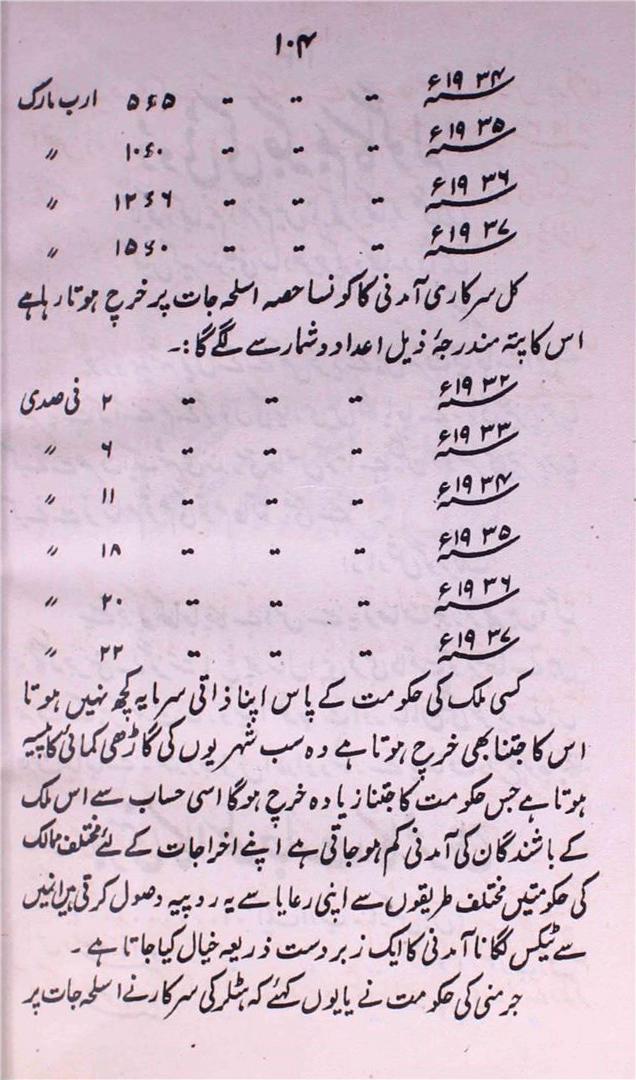 ۱۰۴
۱۹۳۴ء -- -- -- ۵ء۵ ارب مارک
۱۹۳۵ء -- -- -- ۱۰ء۰ 〃
۱۹۳۶ء -- -- -- ۱۲ء۶ 〃
۱۹۳۷ء -- -- -- ۱۵ء۰ 〃
کل سرکاری آمدنی کا کونسا حصہ اسلحہ جات پر خرچ ہوتا رہا ہے
اس کا پتہ مندرجۂ ذیل اعداد و شمار سے لگے گا:۔
۱۹۳۲ء -- -- -- ۲ فی صدی
۱۹۳۳ء -- -- -- ۶ 〃
۱۹۳۴ء -- -- -- ۱۱ 〃
۱۹۳۵ء -- -- -- ۱۸ 〃
۱۹۳۶ء -- -- -- ۲۰ 〃
۱۹۳۷ء -- -- -- ۲۲ 〃
کسی ملک کی حکومت کے پاس اپنا ذاتی سرمایہ کچھ نہیں ہوتا
اس کا جتنا بھی خرچ ہوتا ہے وہ سب شہریوں کی گاڑھی کمائی کا پیسہ
ہوتا ہے جس حکومت کا جتنا زیادہ خرچ ہوگا اسی حساب سے اس ملک
کے باشندگان کی آمدنی کم ہو جاتی ہے اپنے اخراجات کے لئے مختلف ممالک
کی حکومتیں مختلف طریقوں سے اپنی رعایا سے یہ روپیہ وصول کرتی ہیں انہیں
سے ٹیکس لگانا آمدنی کا ایک زبردست ذریعہ خیال کیا جاتا ہے ۔
جرمنی کی حکومت نے یا یوں کہئے کہ ہٹلر کی سرکار نے اسلحہ جات پر